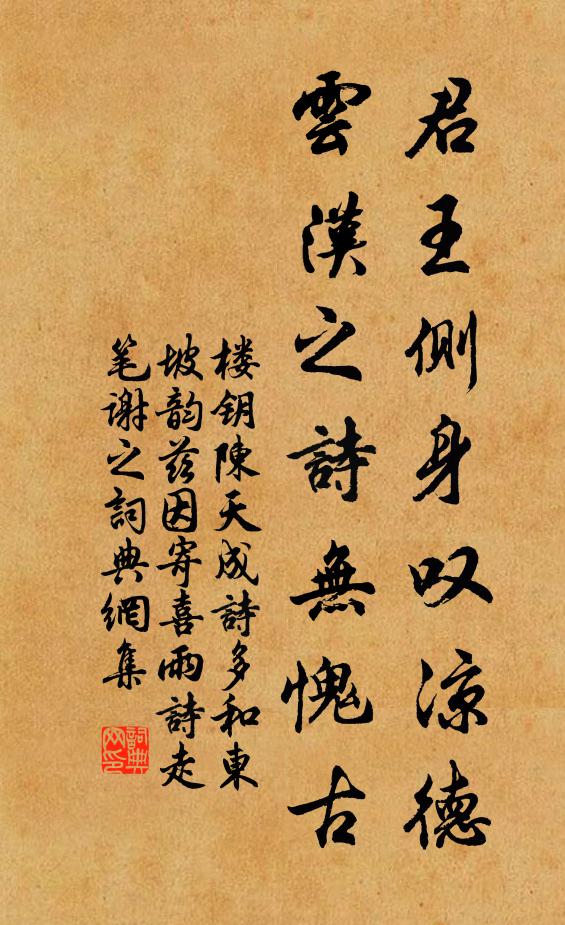 君王側身叹涼德
雲漢之詩無愧古
楼钥陳天成詩多和東
坡韵茲因寄喜雨詩走
笔谢之詞典網集
詞典
网印